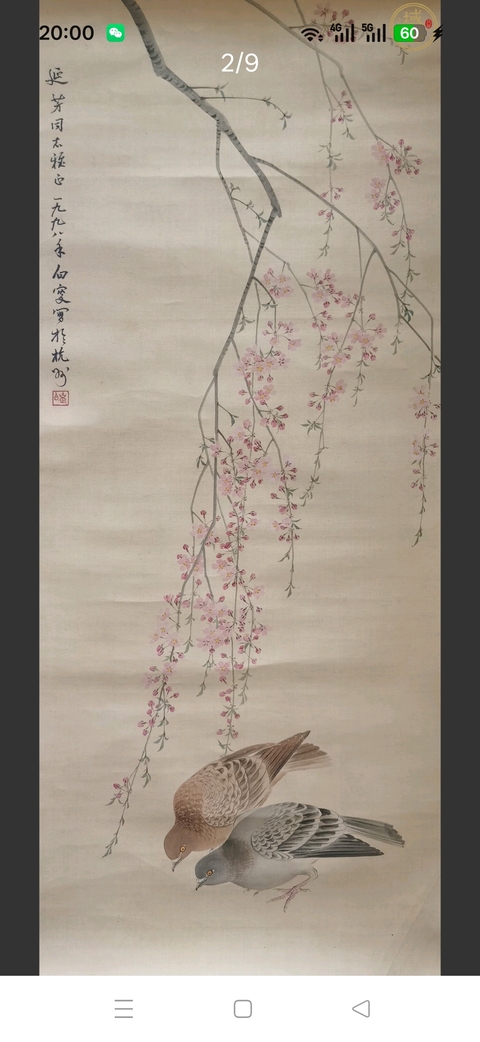 20:00
4G
5G
60
2/9
延芳同志雅正 一九九八年 白雯写於杭州